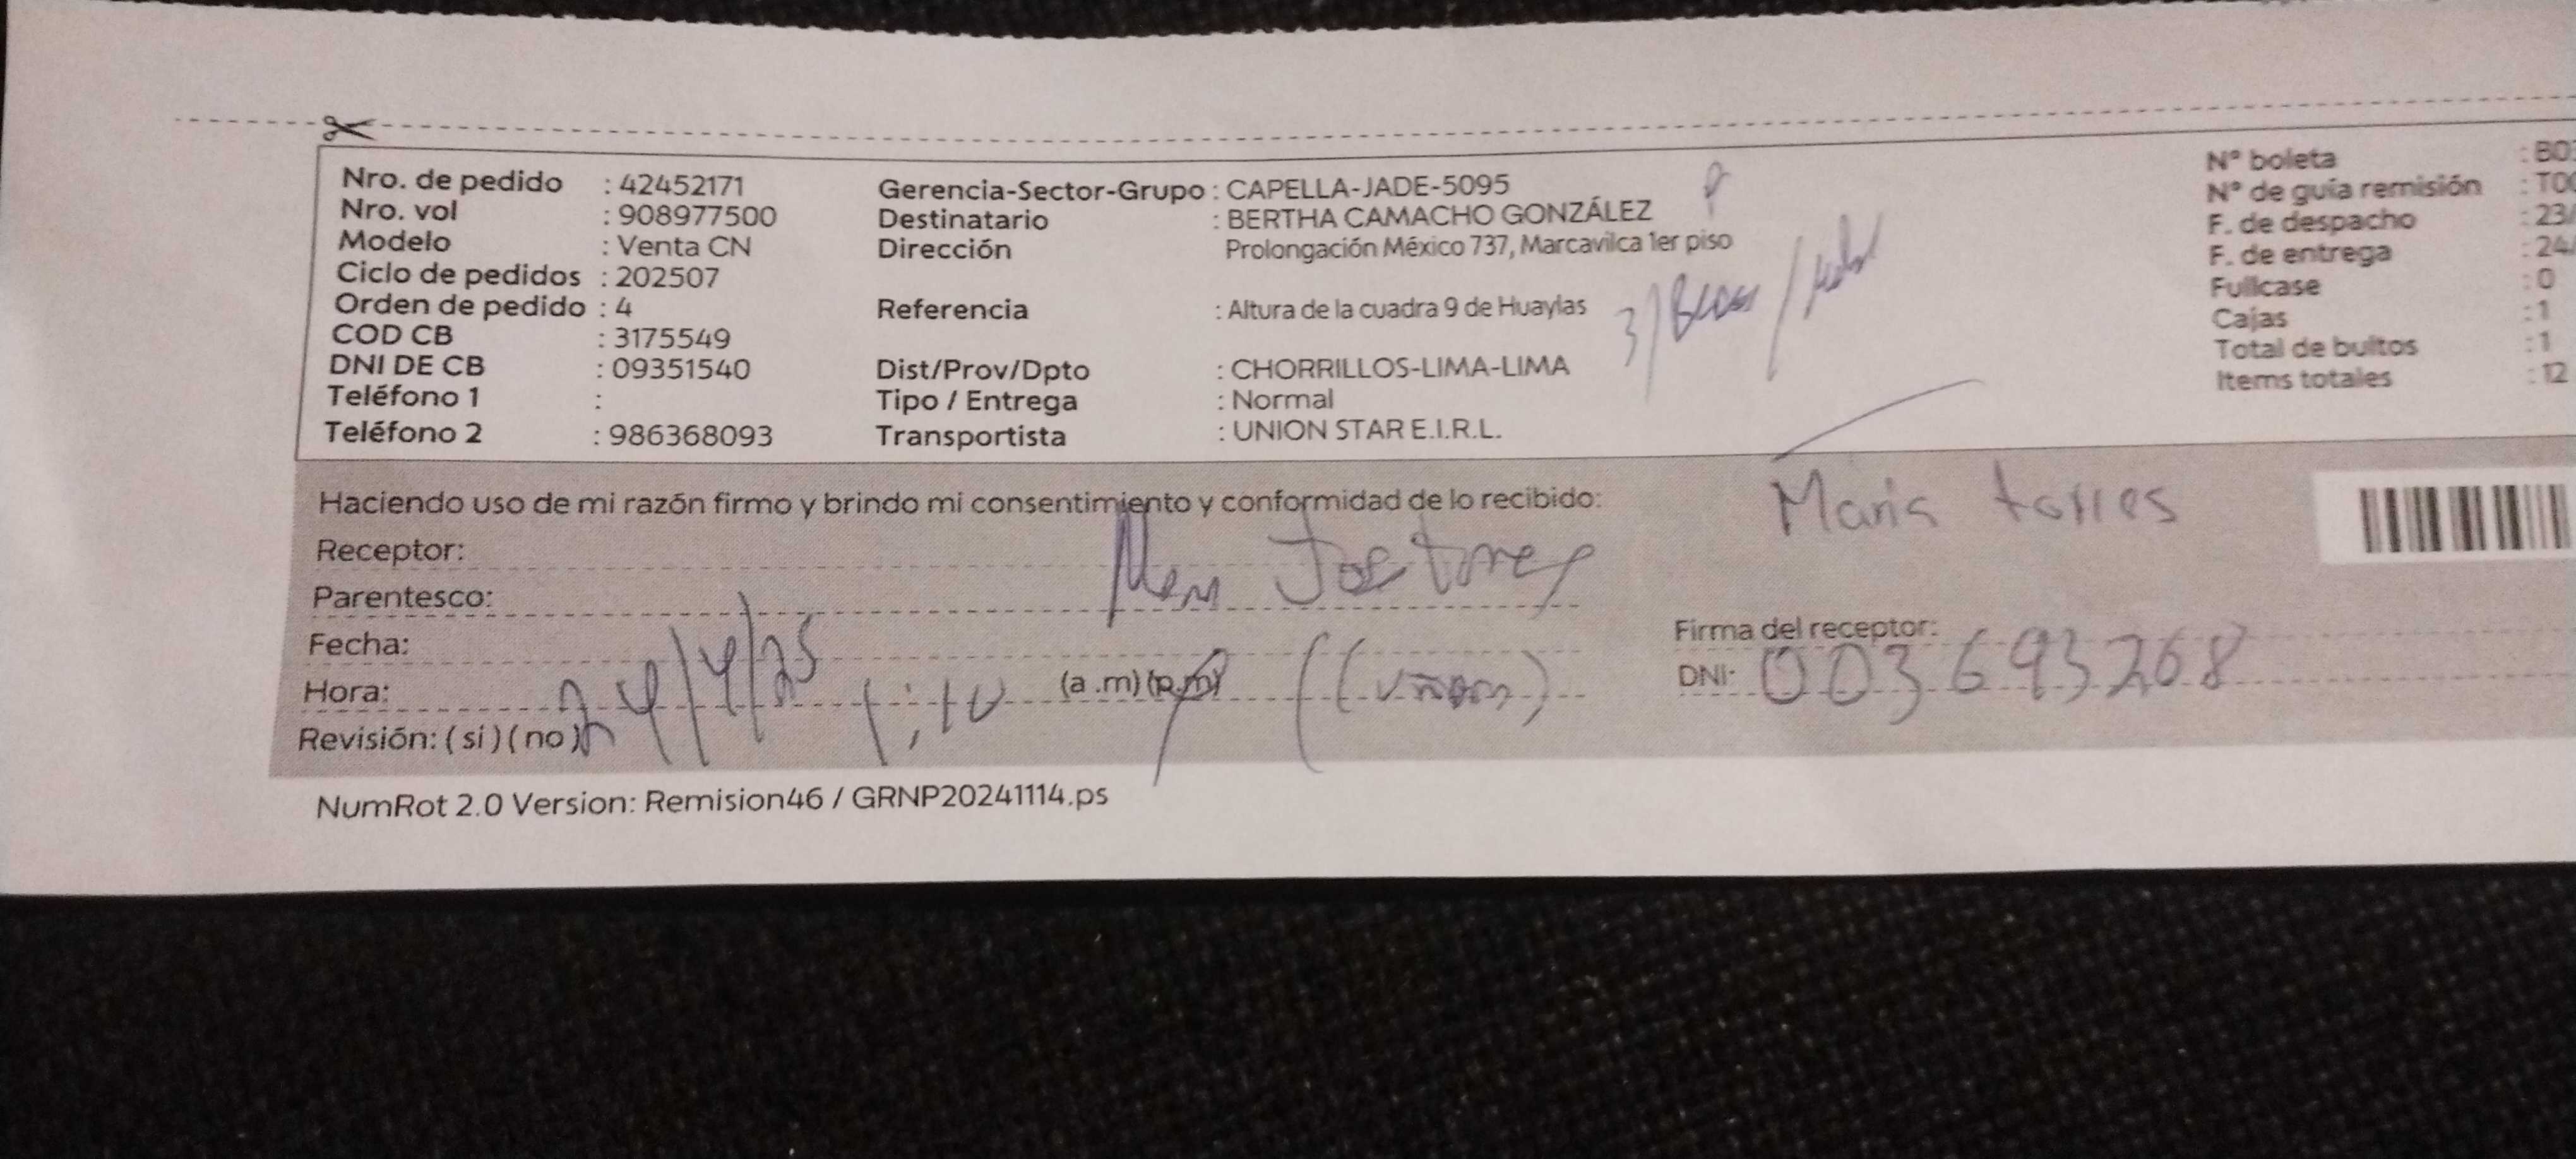 Nro. de pedido : 42452171
Nro. vol : 908977500
Modelo : Venta CN
Ciclo de pedidos : 202507
Orden de pedido : 4
COD CB : 3175549
DNI DE CB : 09351540
Teléfono 1 :
Teléfono 2 : 986368093
Gerencia-Sector-Grupo : CAPELLA-JADE-5095
Destinatario : BERTHA CAMACHO GONZÁLEZ
Dirección Prolongación México 737, Marcavilca 1er piso
Referencia : Altura de la cuadra 9 de Huaylas
Dist/Prov/Dpto : CHORRILLOS-LIMA-LIMA
Tipo / Entrega : Normal
Transportista : UNION STAR E.I.R.L.
3/
N° boleta : B0
N° de guía remisión : T00
F. de despacho : 23/
F. de entrega : 24/
Fullcase : 0
Cajas : 1
Total de bultos : 1
Items totales : 12
Haciendo uso de mi razón firmo y brindo mi consentimiento y conformidad de lo recibido:
Receptor:
Parentesco:
Fecha: 24/4/25
Hora: 1:10 (a .m) (p.m)
Revisión: ( si ) ( no )
Maria torres
Firma del receptor:
DNI: 003693268
NumRot 2.0 Version: Remision46 / GRNP20241114.ps